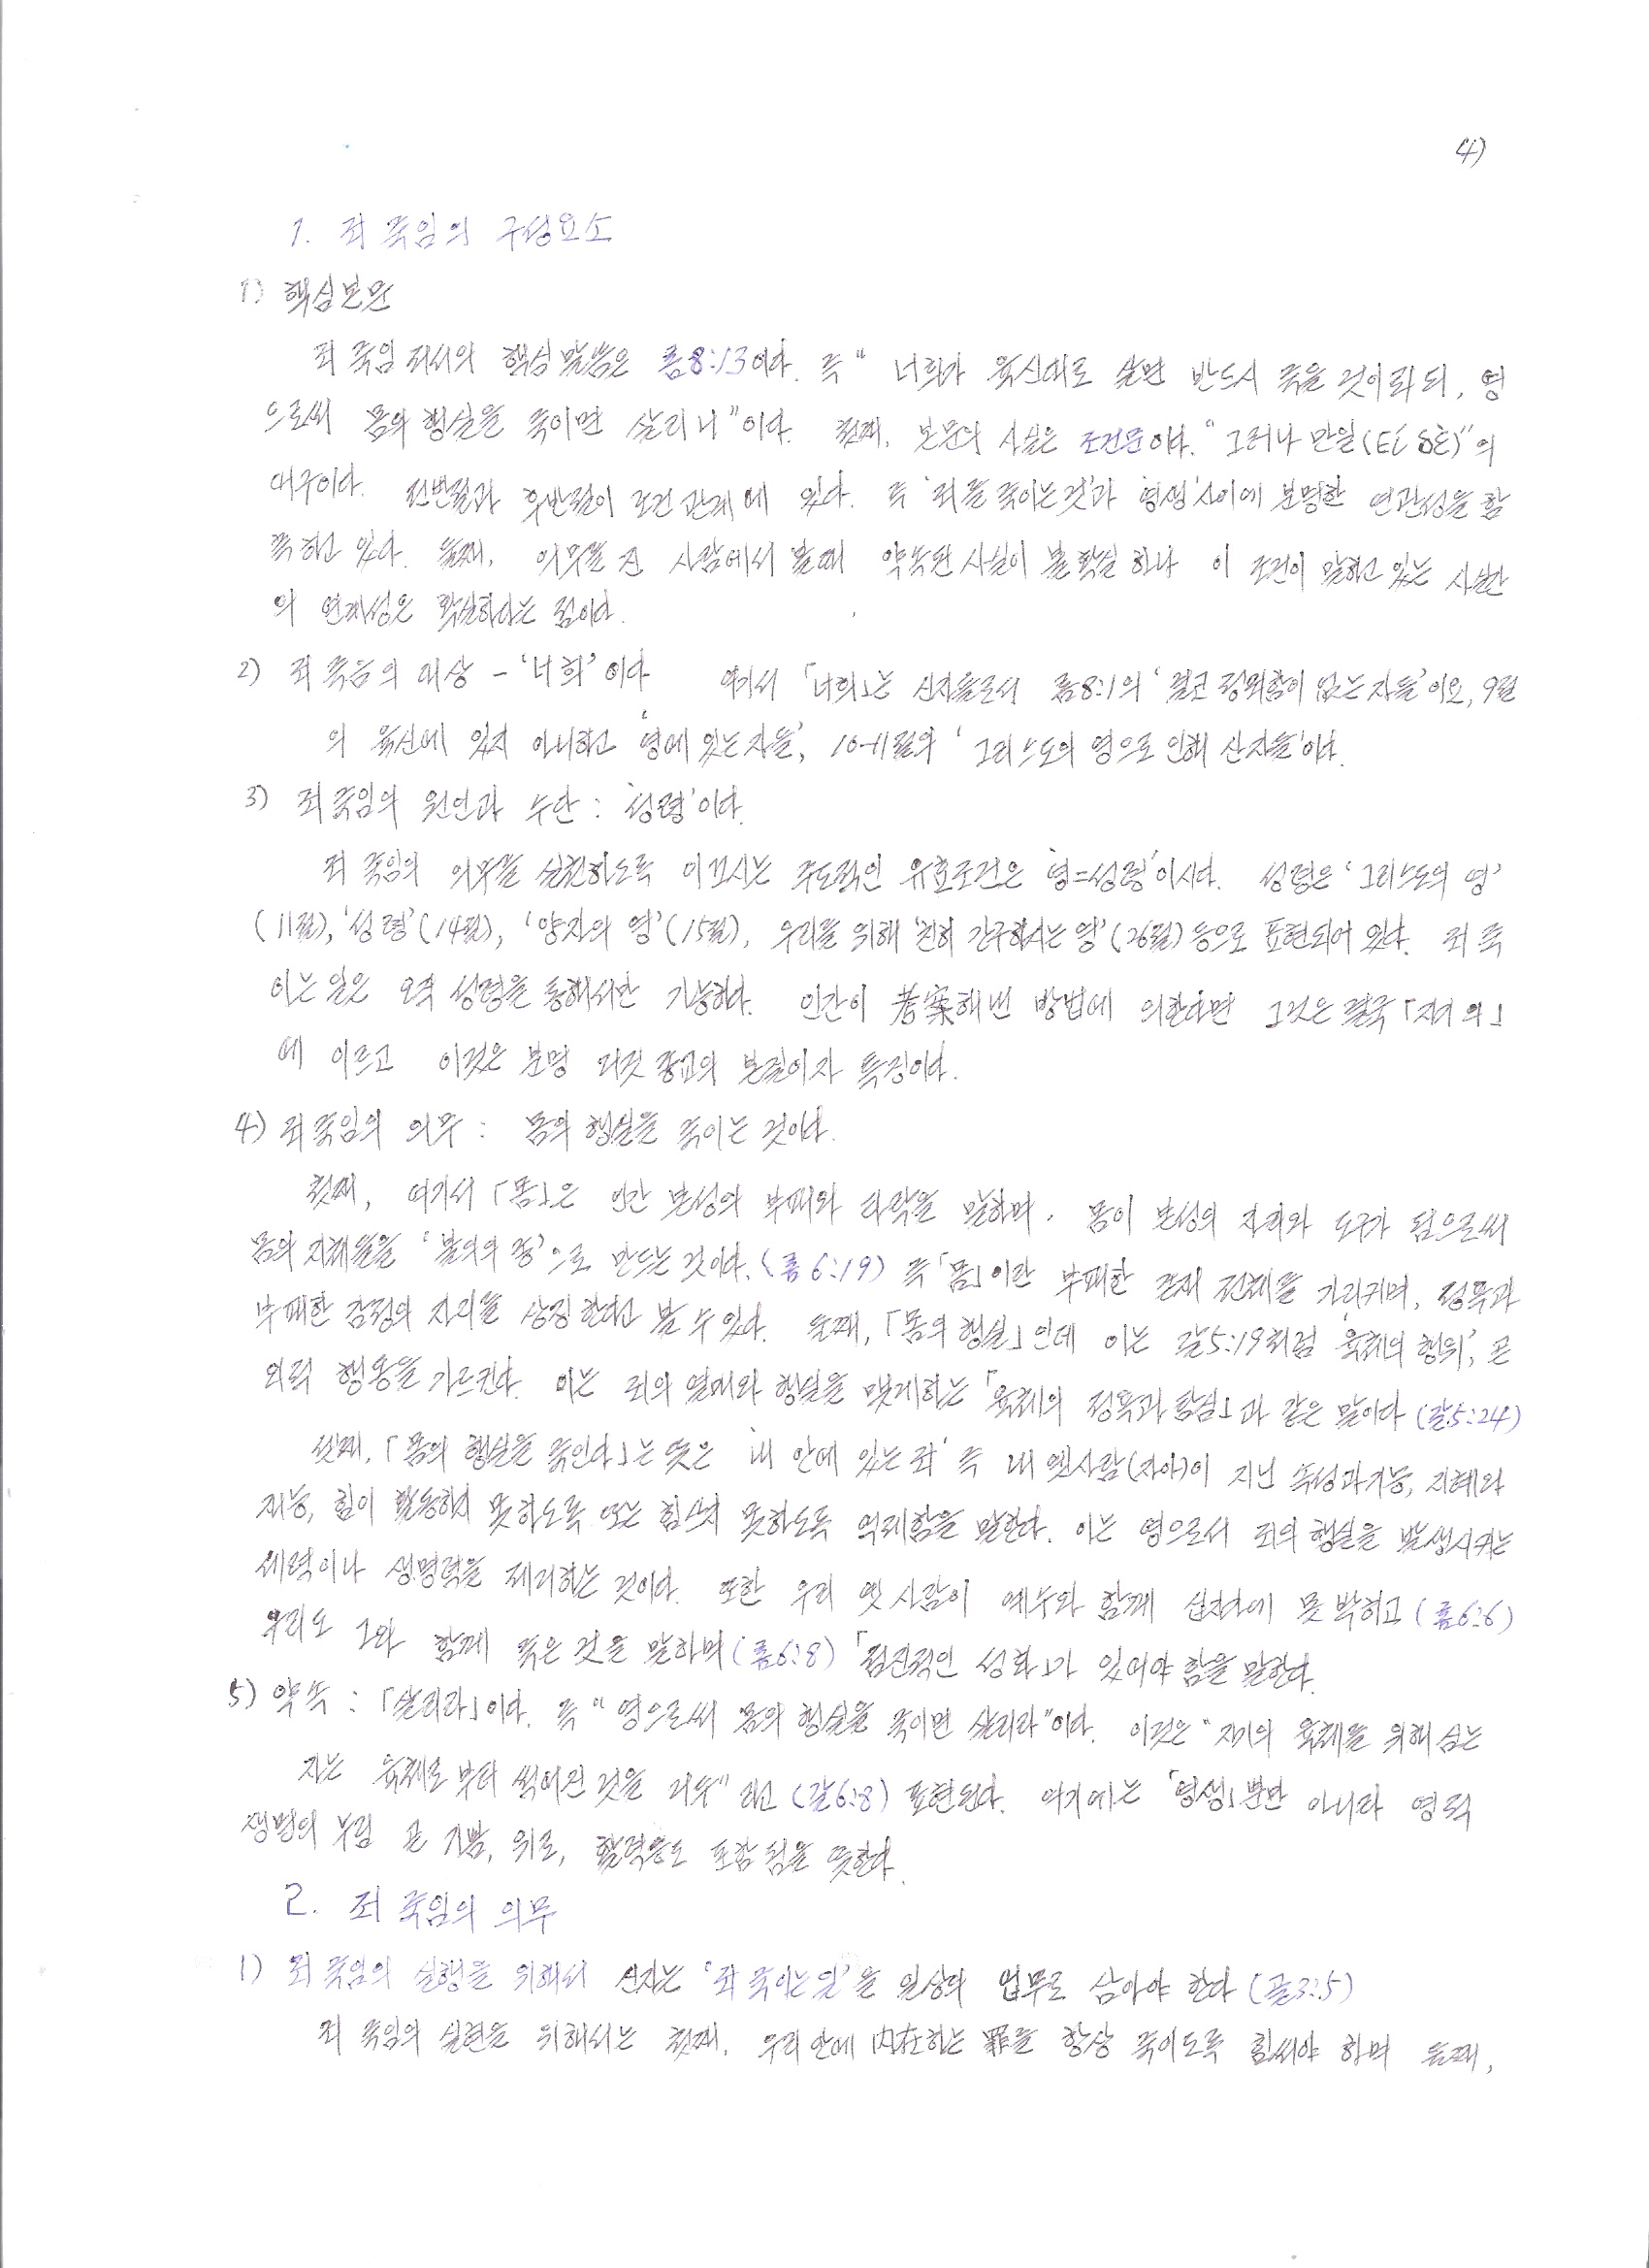 4)
1. 죄 죽임의 구성요소
1) 핵심본문
죄 죽임 제시의 핵심 말씀은 롬8:13이다. 즉 " 너희가 육신대로 살면 반드시 죽을 것이로되, 영
으로써 몸의 행실을 죽이면 살리니"이다. 첫째, 본문의 사실은 조건문이다. "그러나 만일(εἰ δὲ)"의
대구이다. 전반절과 후반절이 조건 관계에 있다. 즉 '죄를 죽이는 것'과 '영생'사이에 분명한 연관성을 함
축하고 있다. 둘째, 의무를 진 사람에서 볼때 약속된 사실이 불확실하나 이 조건이 말하고 있는 사실간
의 연계성은 확실하다는 점이다.
2) 죄 죽음의 대상 - '너희'이다 여기서 「너희」는 신자들로서 롬8:1의 '결코 정죄함이 없는 자들'이요, 9절
의 육신에 있지 아니하고 '영에 있는자들', 10-11절의 '그리스도의 영으로 인해 산자들'이다.
3) 죄 죽임의 원인과 수단 : '성령'이다.
죄 죽임의 의무를 실천하도록 이끄시는 주도적인 유효조건은 '영=성령'이시다. 성령은 '그리스도의 영'
(11절), '성령'(14절), '양자의 영'(15절), 우리를 위해 '친히 간구하시는 영'(26절) 등으로 표현되어 있다. 죄 죽
이는 일은 오직 성령을 통해서만 가능하다. 인간이 考案해 낸 방법에 의한다면 그것은 결국 「자기 의」
에 이르고 이것은 분명 거짓 종교의 본질이자 특징이다.
4) 죄 죽임의 의무 : 몸의 행실을 죽이는 것이다.
첫째, 여기서 「몸」은 인간 본성의 부패와 타락을 말하며, 몸이 본성의 자리와 도구가 됨으로써
몸의 지체들을 '불의의 종'으로 만드는 것이다. (롬6:19) 즉 「몸」이란 부패한 존재 전체를 가리키며, 정욕과
부패한 감정의 자리를 상징한다고 볼 수 있다. 둘째, 「몸의 행실」인데 이는 갈5:19처럼 '육체의 행위', 곧
외적 행동을 가르킨다. 이는 죄의 열매와 행실을 맺게하는 「육체의 정욕과 탐심」과 같은 말이다 (갈5:24)
셋째, 「몸의 행실을 죽인다」는 뜻은 '내 안에 있는 죄' 즉 내 옛사람(자아)이 지닌 속성과 기능, 지혜와
재능, 힘이 활동하지 못하도록 또는 힘쓰지 못하도록 억제함을 말한다. 이는 영으로서 죄의 행실을 발생시키는
세력이나 생명력을 제거하는 것이다. 또한 우리 옛 사람이 예수와 함께 십자가에 못 박히고 (롬6:6)
우리도 그와 함께 죽은 것을 말하며 (롬6:8) 「점진적인 성화」가 있어야 함을 말한다.
5) 약속 : 「살리라」이다. 즉 "영으로써 몸의 행실을 죽이면 살리라"이다. 이것은 "자기의 육체를 위해 심는
자는 육체로 부터 썩어진 것을 거두" 라고 (갈6:8) 표현된다. 여기에는 「영생」뿐만 아니라 영적
생명의 누림 곧 기쁨, 위로, 활력등도 포함 됨을 뜻한다.
2. 죄 죽임의 의무
1) 죄 죽임의 실행을 위해서 신자는 '죄 죽이는 일'을 일상의 업무로 삼아야 한다 (골3:5)
죄 죽임의 실현을 위해서는 첫째, 우리 안에 內在하는 罪를 항상 죽이도록 힘써야 하며 둘째,